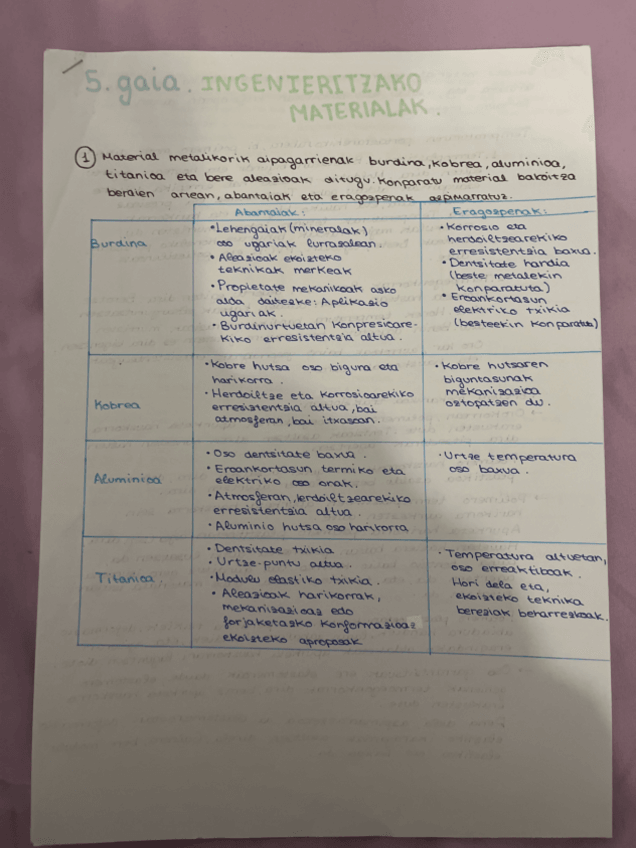 5. gaia. INGENIERITZAKO
MATERIALAK.
1 Material metalikorik aipagarrienak burdina, kobrea, aluminioa,
titanioa eta bere aleazioak ditugu. Konparatu material bakoitza
beraien artean, abantaiak eta eragozpenak azpimarratuz.
Abantaiak:
Eragozpenak:
Burdina
• Lehengaiak (mineralak)
oso ugariak lurrazalean.
• Aleazioak ekoizteko
teknikak merkeak
• Propietate mekanikoak asko
alda daitezke: Aplikazio
ugariak.
• Burdinurtuetan konpresioare-
kiko erresistentzia altua.
• Korrosio eta
herdoiltzearekiko
erresistentzia baxua.
• Dentsitate handia
(beste metalekin
konparatuta)
• Eroankortasun
elektriko txikia
(besteekin konparatuz)
Kobrea
• Kobre hutsa oso bigura eta
harikorra.
• Herdoiltze eta korrosioarekiko
erresistentzia altua, bai
atmosferan, bai itxasoan.
• Kobre hutsaren
biguntasunak
mekanizazioa
oztopatzen du.
Aluminioa
• Oso dentsitate baxua.
• Eroankortasun termiko eta
elektriko oso onak.
• Atmosferan, herdoiltzearekiko
erresistentzia altua.
• Aluminio hutsa oso harikorra
• Urtze temperatura
oso baxua.
Titanioa
• Dentsitate txikia
• Urtze-puntu altua.
• Modulu elastiko txikia.
• Aleazioak harikorrak,
mekanizazioaz edo
forjaketazko konformazioaz
ekoizteko aproposak
• Temperatura altuetan,
oso erreaktiboak.
Hori dela eta,
ekoizteko teknika
bereziak beharrezkoak.